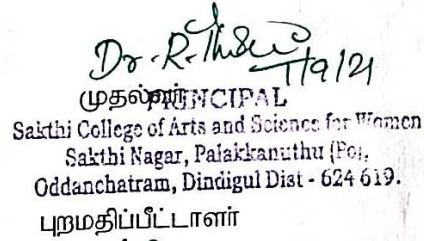 Dr. R. 7/9/21
முதல்வர் PRINCIPAL
Sakthi College of Arts and Science for Women
Sakthi Nagar, Palakkanuthu (Po),
Oddanchatram, Dindigul Dist - 624 619.
புறமதிப்பீட்டாளர்